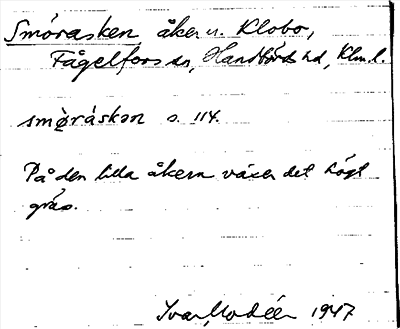 Smörasken åker u. Klobo,
Fågelfors sn, Handbörds hd, Klm. l.
smø̀ráskən s. 114.
På den lilla åkern växer det högt
gräs.
Ivar Modéer 1947